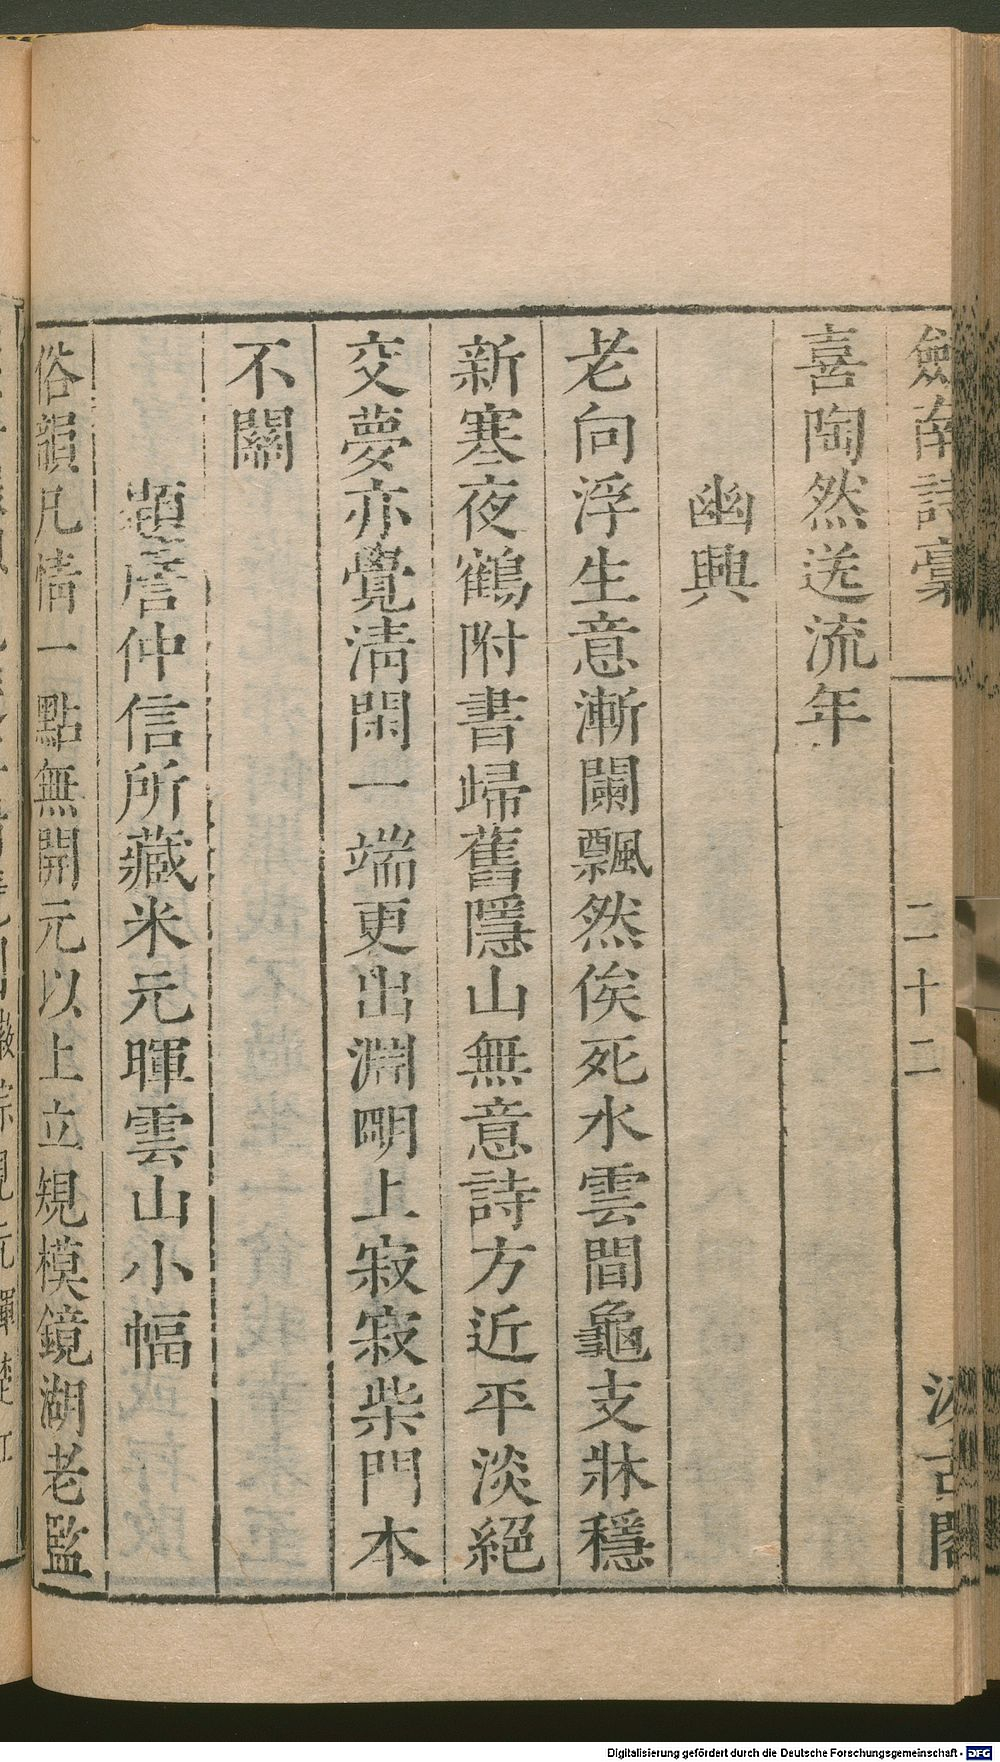 劍南詩稾 二十二 汲古閣
喜陶然送流年
幽興
老向浮生意漸闌飄然俟死水雲間龜支牀穩
新寒夜鶴附書歸舊隱山無意詩方近平淡絕
交夢亦覺淸閑一端更出淵明上寂寂柴門本
不關
題詹仲信所藏米元暉雲山小幅
俗韻凡情一點無開元以上立規模鏡湖老監
Digitalisierung gefördert durch die Deutsche Forschungsgemeinschaft - DFG